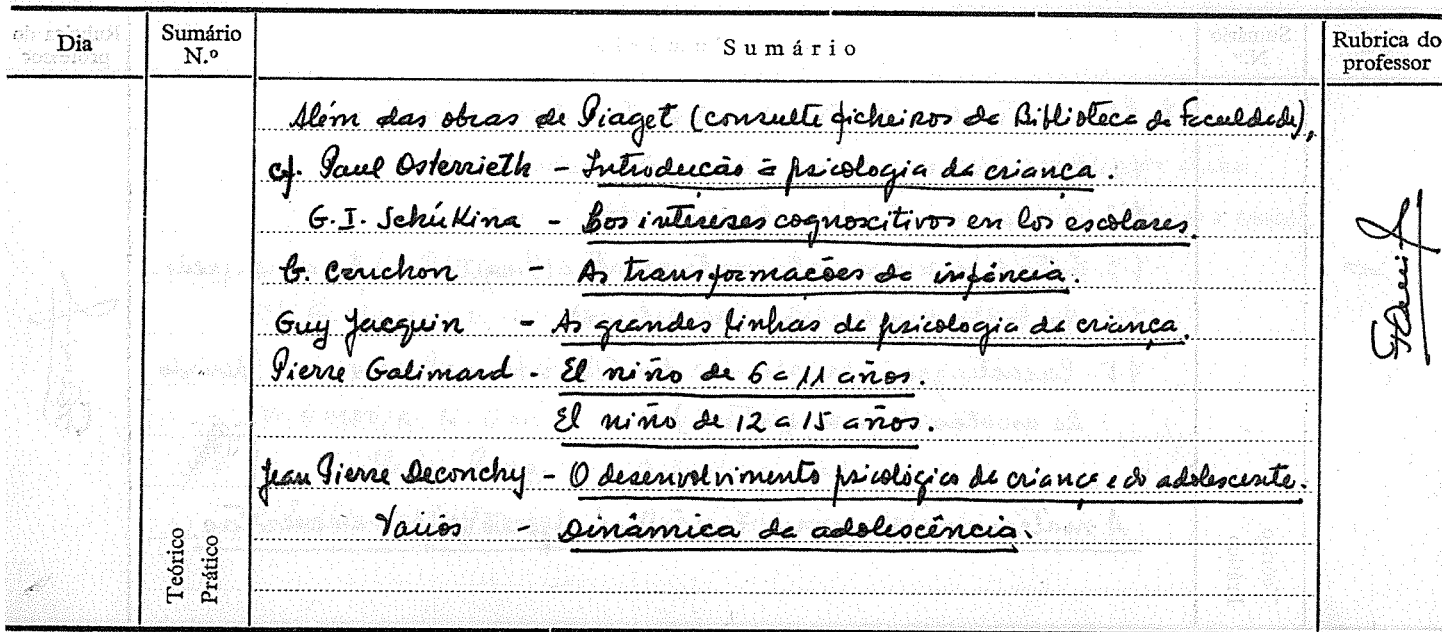 Dia
Sumário N.º
Sumário
Rubrica do professor
Além das obras de Piaget (consulte ficheiros da Biblioteca da Faculdade),
cf. Paul Osterrieth - Introdução à psicologia da criança.
G. I. Schúkina - Los intereses cognoscitivos en los escolares.
G. Cruchon - As transformações da infância.
Guy Jacquin - As grandes linhas da psicologia da criança.
Pierre Galimard - El niño de 6 a 11 años.
El niño de 12 a 15 años.
Jean Pierre Deconchy - O desenvolvimento psicológico da criança e do adolescente.
Vários - Dinâmica da adolescência.
Teórico
Prático